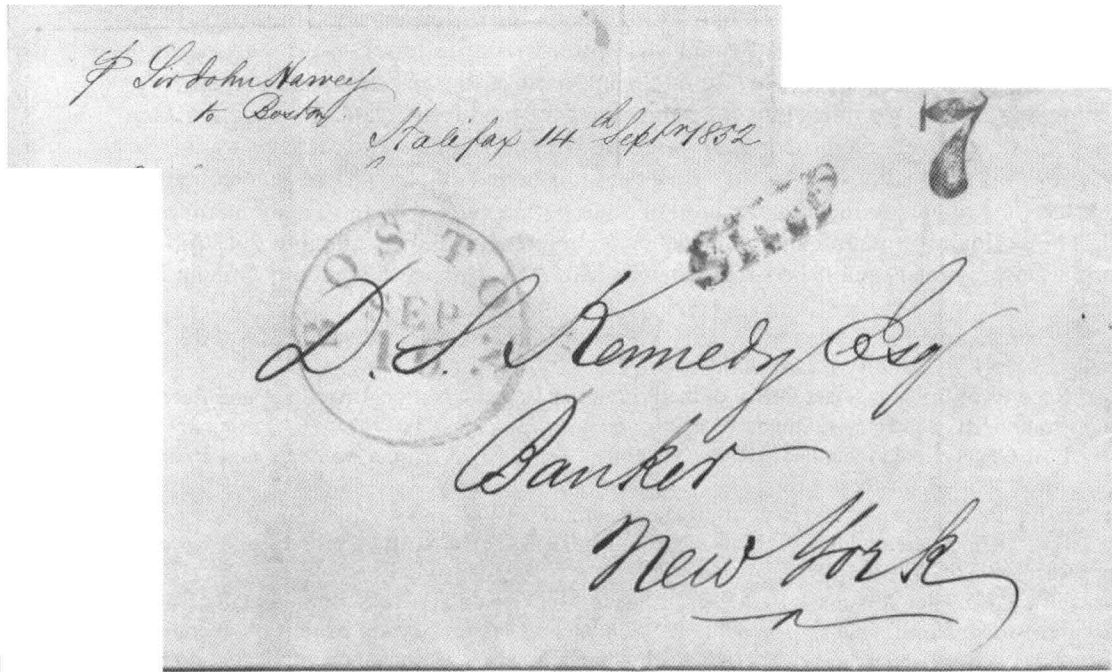 ⅌ Sir John Harvey
to Boston
Halifax 14th Septr 1852
7
SHIP
BOSTON
SEP
D. S. Kennedy Esq
Banker
New York